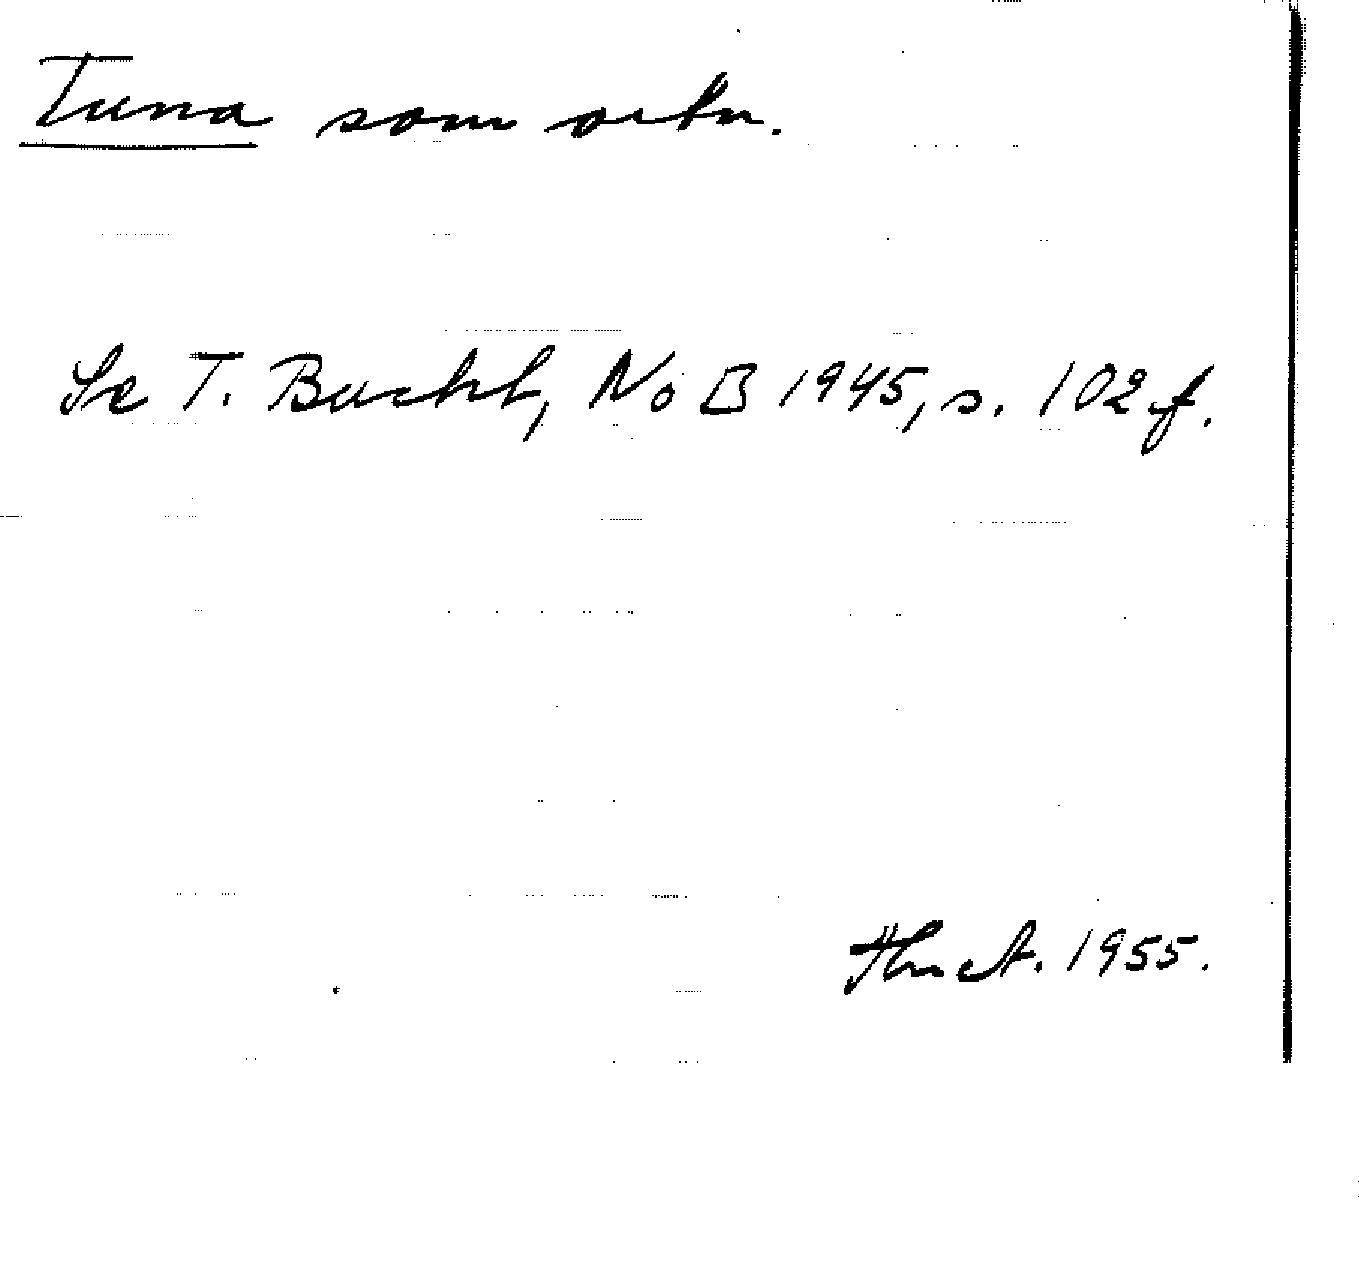 Tuna som ortn.
Se T. Buchh, NoB 1945, s. 102 f.
1955.